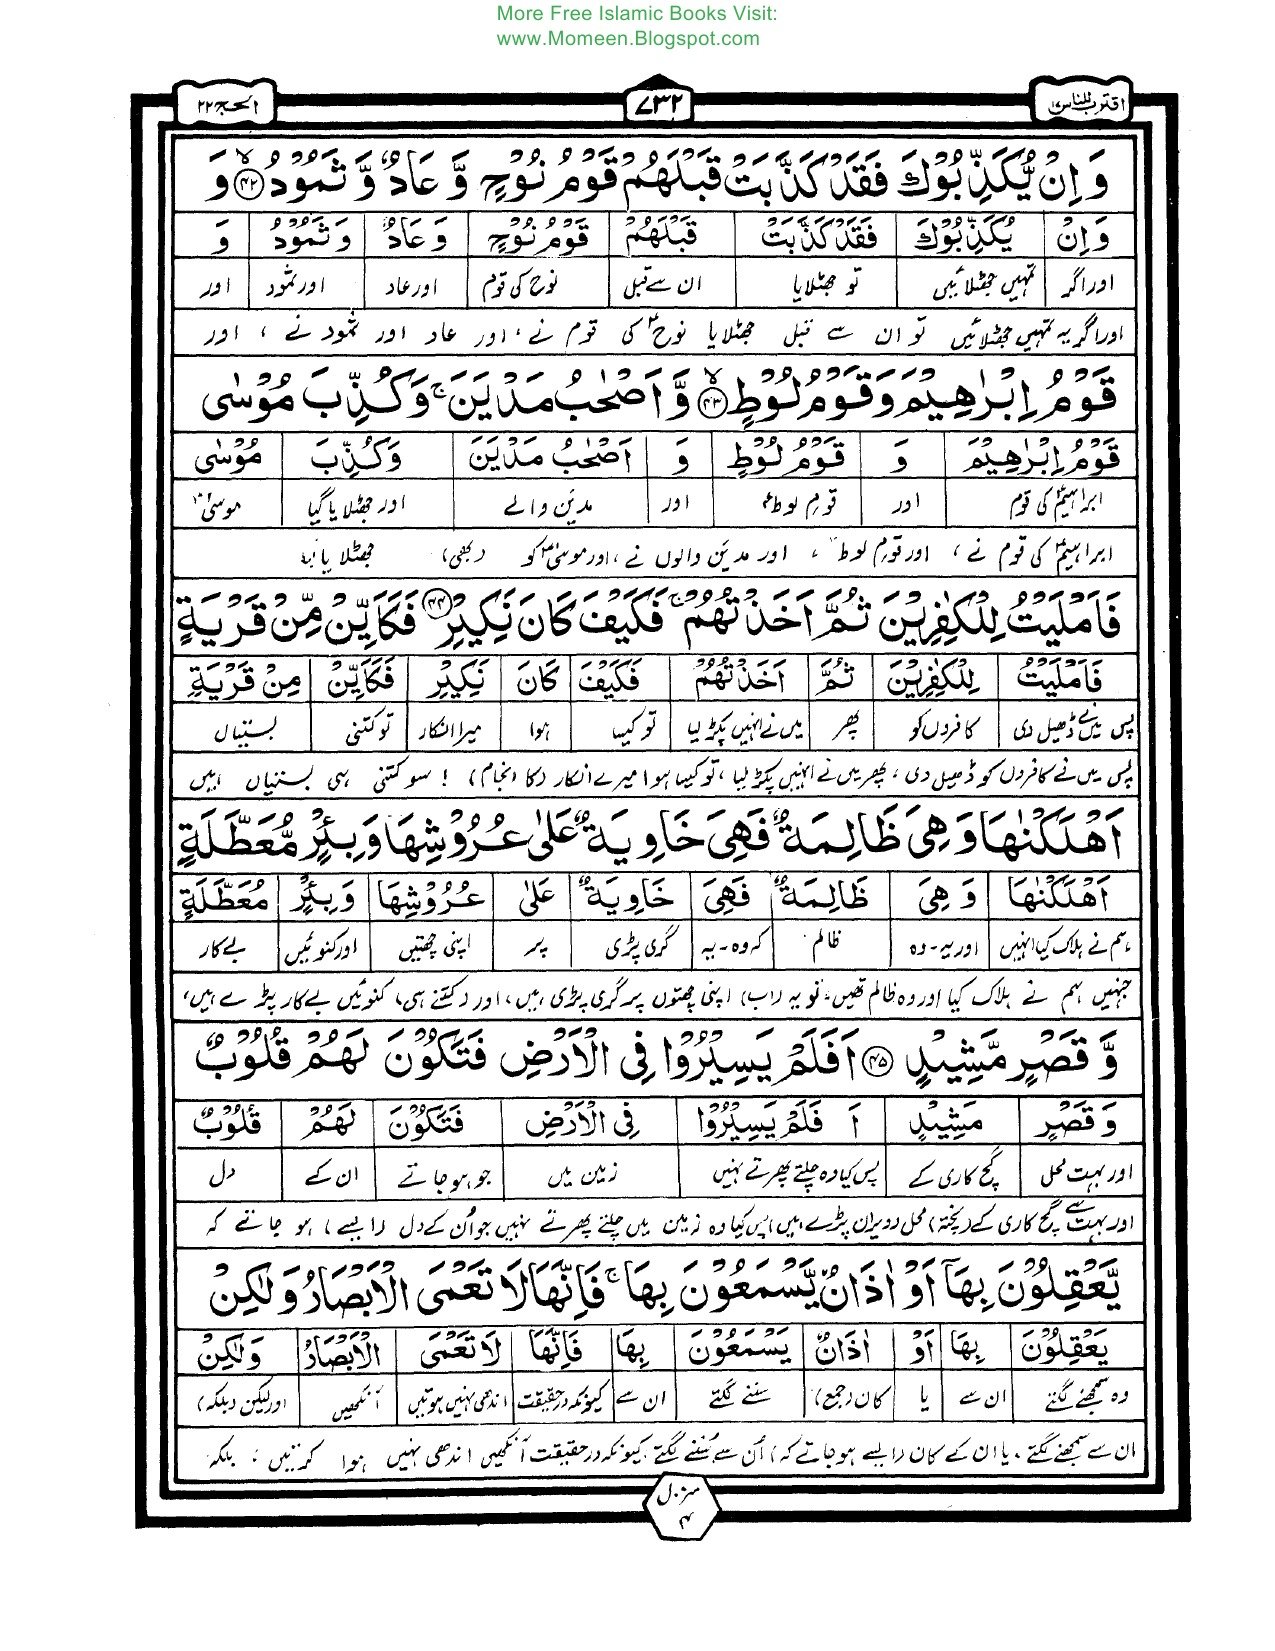 More Free Islamic Books Visit:
www.Momeen.Blogspot.com
اقترب للناس ۱۷
۷۳۲
الحج ۲۲
وَاِنْ يُّكَذِّبُوْكَ فَقَدْ كَذَّبَتْ قَبْلَهُمْ قَوْمُ نُوْحٍ وَّ عَادٌ وَّ ثَمُوْدُ ﴿۴۲﴾ وَ
وَاِنْ يُكَذِّبُوْكَ فَقَدْ كَذَّبَتْ قَبْلَهُمْ قَوْمُ نُوْحٍ وَّ عَادٌ وَّ ثَمُوْدُ وَ
اور اگر تمہیں جھٹلائیں تو جھٹلایا ان سے قبل نوح کی قوم اور عاد اور ثمود اور
اور اگر یہ تمہیں جھٹلائیں تو ان سے قبل جھٹلایا نوحؑ کی قوم نے، اور عاد اور ثمود نے ، اور
قَوْمُ اِبْرٰهِيْمَ وَقَوْمُ لُوْطٍ ﴿۴۳﴾ وَّاَصْحٰبُ مَدْيَنَ ۚ وَكُذِّبَ مُوْسٰى
قَوْمُ اِبْرٰهِيْمَ وَ قَوْمُ لُوْطٍ وَ اَصْحٰبُ مَدْيَنَ وَكُذِّبَ مُوْسٰى
ابراہیمؑ کی قوم اور قوم لوطؑ اور مدین والے اور جھٹلایا گیا موسیٰؑ
ابراہیمؑ کی قوم نے ، اور قوم لوطؑ ، اور مدین والوں نے ، اور موسیٰؑ کو (بھی) جھٹلایا
فَاَمْلَيْتُ لِلْكٰفِرِيْنَ ثُمَّ اَخَذْتُهُمْ ۚ فَكَيْفَ كَانَ نَكِيْرِ ﴿۴۴﴾ فَكَاَيِّنْ مِّنْ قَرْيَةٍ
فَاَمْلَيْتُ لِلْكٰفِرِيْنَ ثُمَّ اَخَذْتُهُمْ فَكَيْفَ كَانَ نَكِيْرِ فَكَاَيِّنْ مِنْ قَرْيَةٍ
پس میں نے ڈھیل دی کافروں کو پھر میں نے انہیں پکڑ لیا تو کیسا ہوا میرا انکار تو کتنی بستیاں
پس میں نے کافروں کو ڈھیل دی ، پھر میں نے انہیں پکڑ لیا ، تو کیسا ہوا میرے انکار (کا انجام) ! سو کتنی ہی بستیاں ہیں
اَهْلَكْنٰهَا وَهِيَ ظَالِمَةٌ فَهِيَ خَاوِيَةٌ عَلٰى عُرُوْشِهَا وَبِئْرٍ مُّعَطَّلَةٍ
اَهْلَكْنٰهَا وَهِيَ ظَالِمَةٌ فَهِيَ خَاوِيَةٌ عَلٰى عُرُوْشِهَا وَبِئْرٍ مُعَطَّلَةٍ
ہم نے ہلاک کیا انہیں اور یہ - وہ ظالم کہ وہ - یہ گری پڑی پر اپنی چھتیں اور کنوئیں بے کار
جنہیں ہم نے ہلاک کیا اور وہ ظالم تھیں ، تو یہ (اب) اپنی چھتوں پر گری پڑی ہیں ، اور (کتنے ہی) کنوئیں بے کار پڑے ہیں ،
وَّ قَصْرٍ مَّشِيْدٍ ﴿۴۵﴾ اَفَلَمْ يَسِيْرُوْا فِي الْاَرْضِ فَتَكُوْنَ لَهُمْ قُلُوْبٌ
وَ قَصْرٍ مَشِيْدٍ اَ فَلَمْ يَسِيْرُوْا فِي الْاَرْضِ فَتَكُوْنَ لَهُمْ قُلُوْبٌ
اور بہت محل گچ کاری کے پس کیا وہ چلتے پھرتے نہیں زمین میں جو ہو جاتے ان کے دل
اور بہت سے گچ کاری کے (پختہ) محل (ویران پڑے ہیں) پس کیا وہ زمین میں چلتے پھرتے نہیں جو اُن کے دل (ایسے) ہو جاتے کہ
يَّعْقِلُوْنَ بِهَآ اَوْ اٰذَانٌ يَّسْمَعُوْنَ بِهَا ۚ فَاِنَّهَا لَا تَعْمَى الْاَبْصَارُ وَلٰكِنْ
يَعْقِلُوْنَ بِهَا اَوْ اٰذَانٌ يَسْمَعُوْنَ بِهَا فَاِنَّهَا لَا تَعْمَى الْاَبْصَارُ وَلٰكِنْ
وہ سمجھنے لگتے ان سے یا کان (جمع) سننے لگتے ان سے کیونکہ درحقیقت اندھی نہیں ہوتیں آنکھیں اور لیکن (بلکہ)
ان سے سمجھنے لگتے ، یا ان کے کان (ایسے ہو جاتے کہ) اُن سے سُننے لگتے کیونکہ درحقیقت آنکھیں اندھی نہیں ہوا کرتیں ، بلکہ
منزل
۴